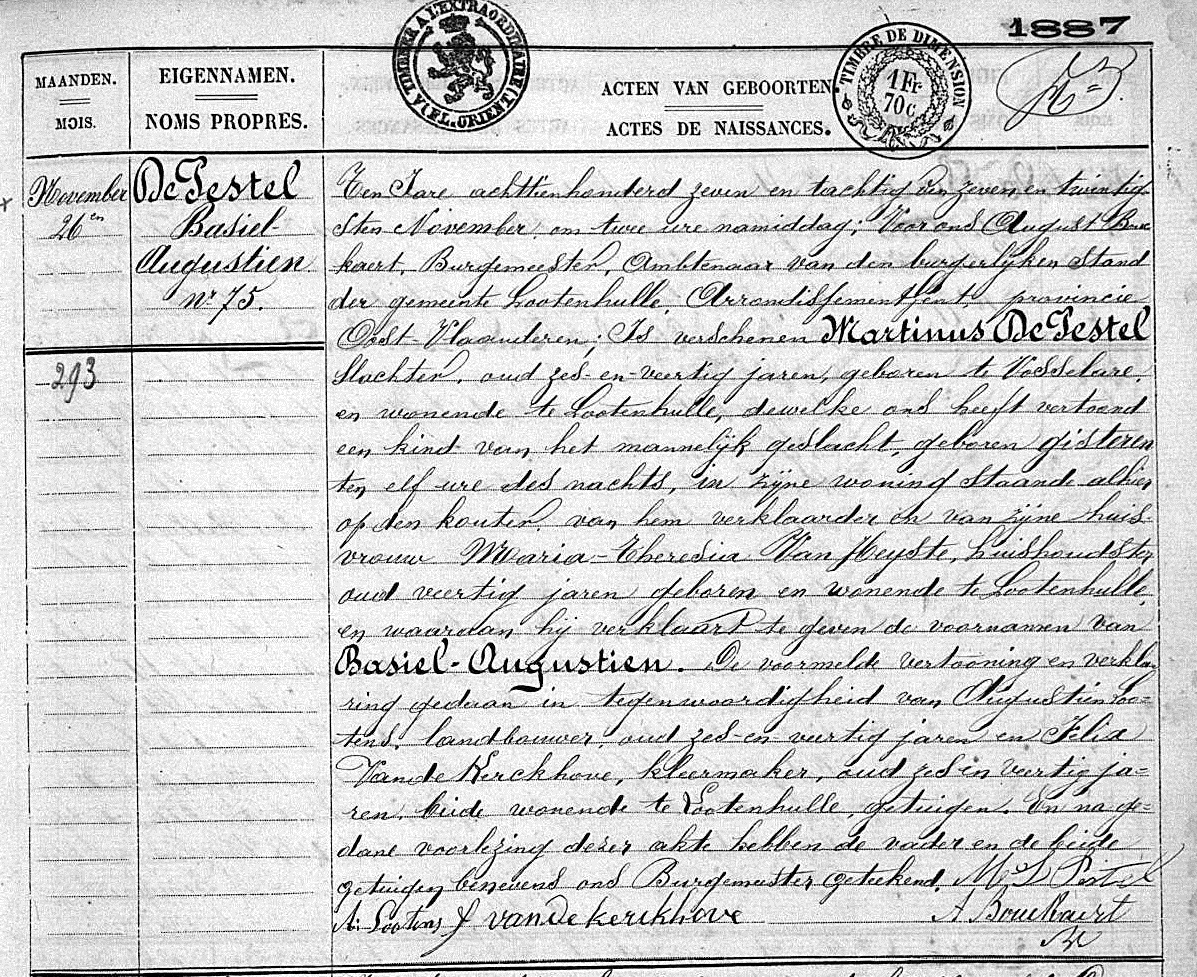 1887
TIMBRE A L'EXTRAORDINAIRE
(FL. ORIENT.)
TIMBRE DE DIMENSION
1 Fr
70 c.
MAANDEN.
MOIS.
EIGENNAMEN.
NOMS PROPRES.
ACTEN VAN GEBOORTEN.
ACTES DE NAISSANCES.
November
26en
293
De Pestel
Basiel-
Augustien
Nr 75.
Ten Jare achttienhonderd zeven en tachtig den zeven en twintig-
sten November, om twee ure namiddag; Voor ons August Bou-
kaert, Burgemeester, Ambtenaar van den burgerlyken Stand
der gemeente Lootenhulle, Arrondissement Gent, provincie
Oost-Vlaanderen; Is verschenen Martinus De Pestel
Slachter, oud zes-en-veertig jaren, geboren te Vosselare,
en wonende te Lootenhulle, dewelke ons heeft vertoond
een kind van het mannelijk geslacht, geboren gisteren
ten elf ure des nachts, in zijne woning staande alhier
op den kouter van hem verklaarder en van zijne huis-
vrouw Maria-Theresia Van Heyste, huishoudster,
oud veertig jaren geboren en wonende te Lootenhulle,
en waaraan hij verklaart te geven de voornamen van
Basiel-Augustien. De voormelde vertooning en verkla-
ring gedaan in tegenwoordigheid van Augustien Loo-
tens, landbouwer, oud zes-en veertig jaren en Felix
Van de Kerckhove, kleermaker, oud zes en veertig ja-
ren, beide wonende te Lootenhulle, getuigen. En na ge-
dane voorlezing dezer akte hebben de vader en de beide
getuigen benevens ons Burgemeester geteekend.
A. Lootens F vandekerckhove A Bouckaert